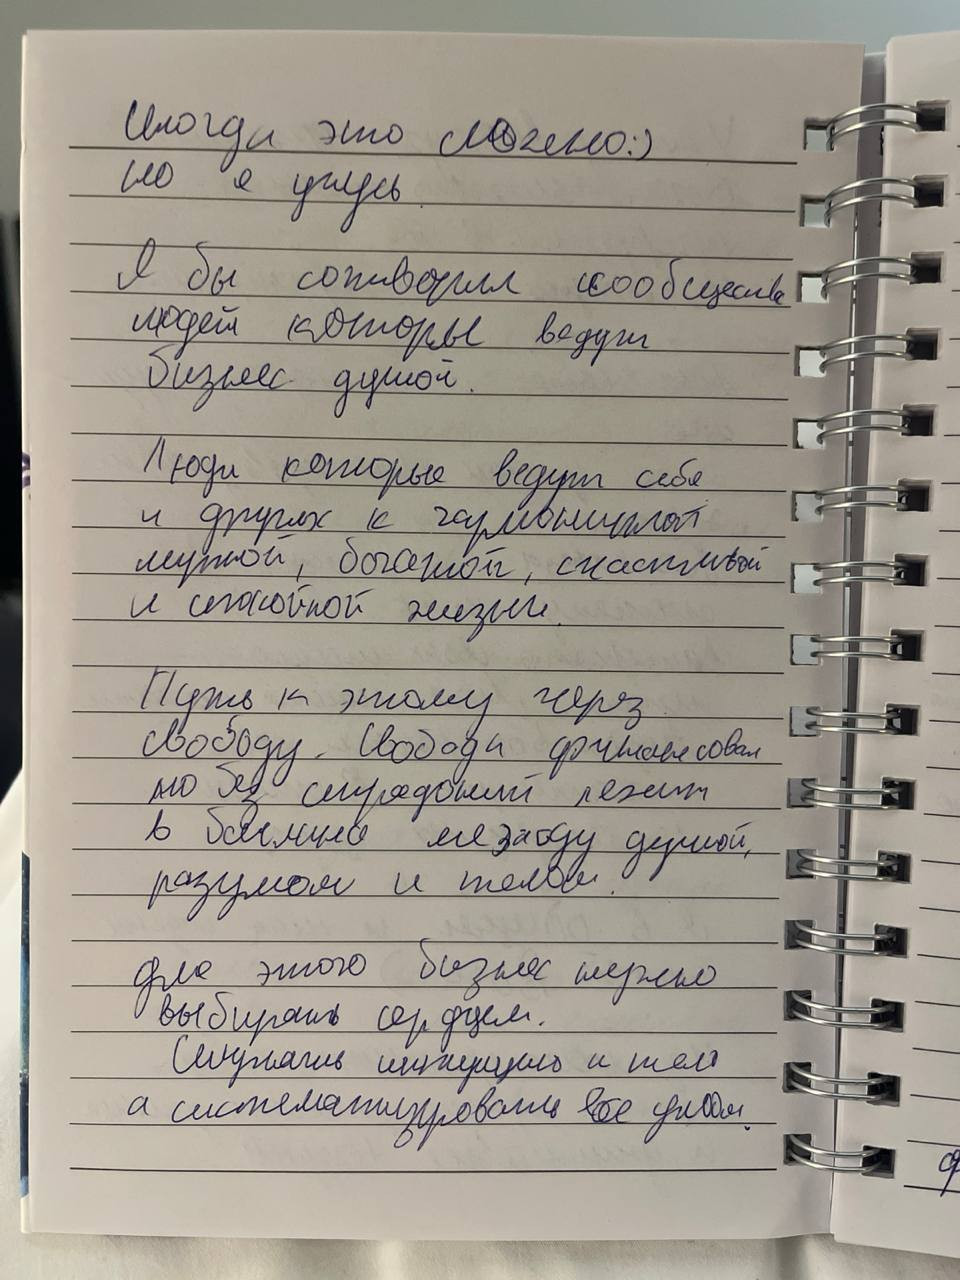 Иногда это сложно:)
но я учусь.
Я бы сотворил сообщества
людей которы ведут
бизнес душой.
Люди которые ведут себя
и других к гармоничной
мирной, богатой, счастливой
и спокойной жизни.
Путь к этому через
свободу. Свобода финансовая
но без страданий лежит
в балансе между душой,
разумом и телом.
для этого бизнес нужно
выбирать сердцем.
Слушать интуицию и тело
а систематизировать все умом.